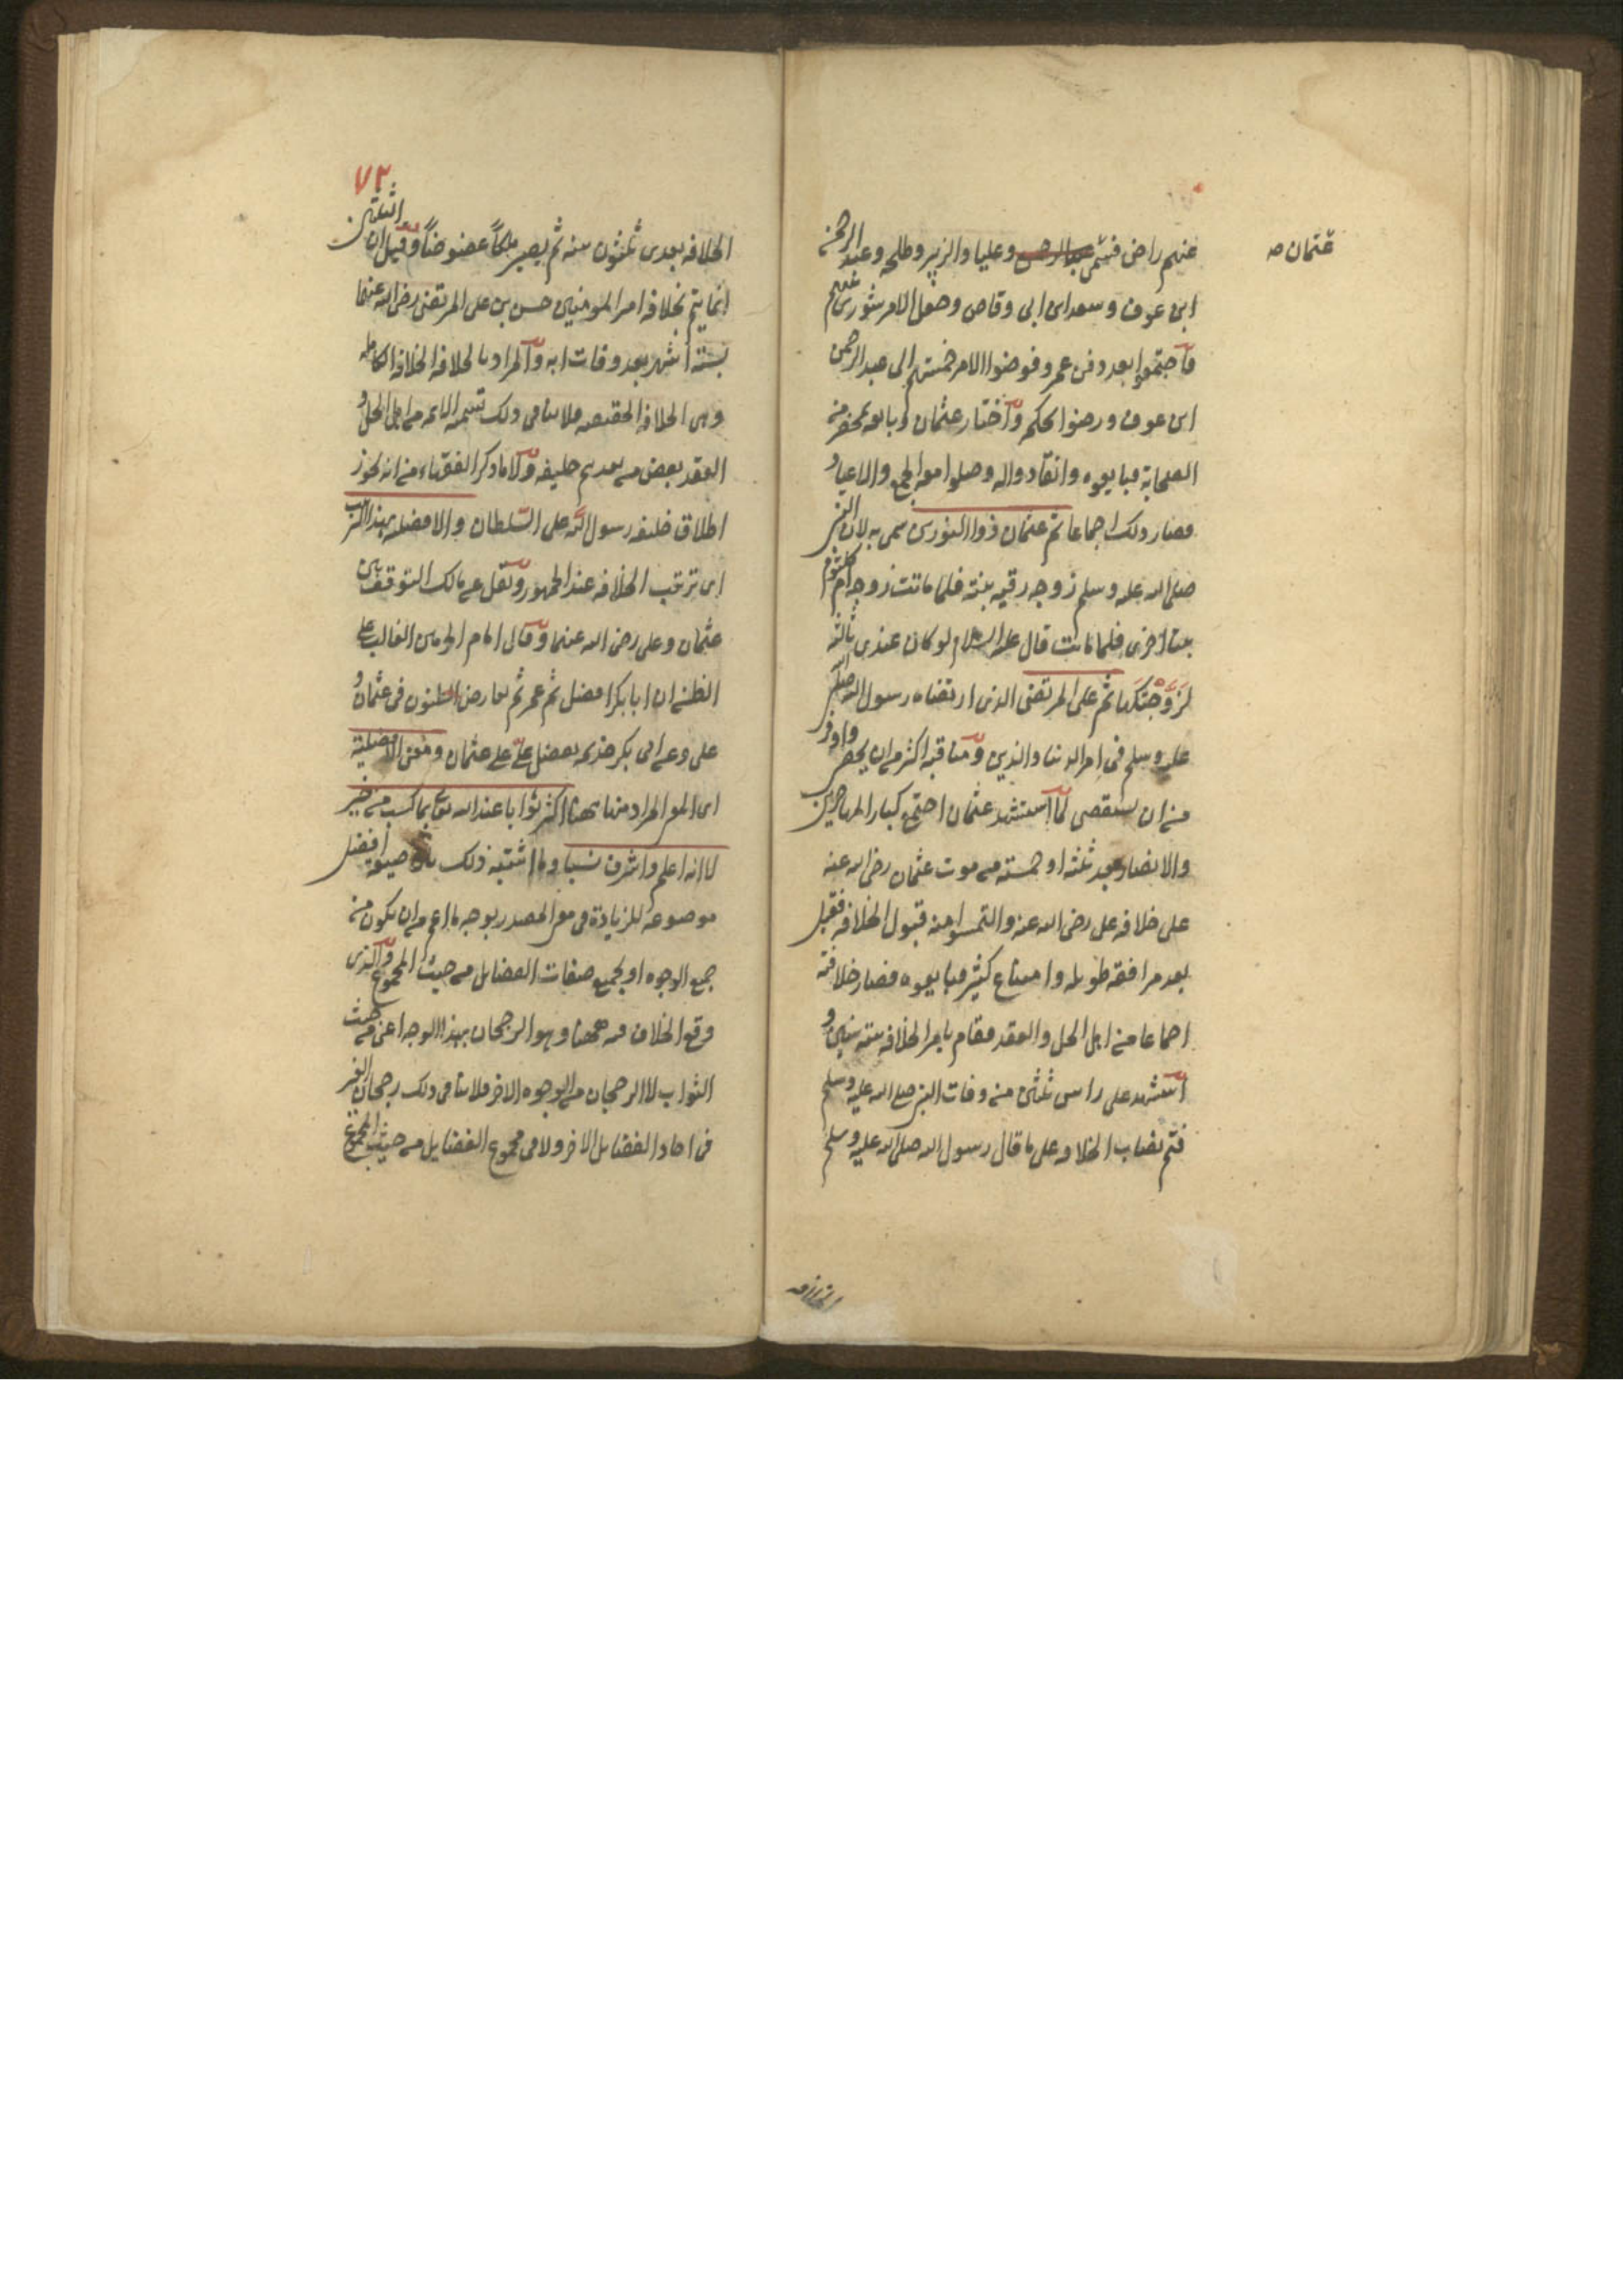 عثمان صه
عنهم راض فسمى وعليا والزبير وطلحه وعبد الرحمن
ابن عوف وسعد ابن ابى وقاص وجعل الامر شورى بينهم
فاجتمعوا بعد دفن عمر وفوضوا الامر خمستهم الى عبد الرحمن
ابن عوف ورضوا بحكمه واختار عثمان وبايعه بمحضر من
الصحابة فبايعوه وانقادوا له وصلوا معه الجمع والاعياد
فصار ذلك اجماعا ثم عثمان ذوا النورين سمى به لان النبى
صلى الله عليه وسلم زوجه رقيه بنته فلما ماتت زوجه ام كلثوم
بنتا اخرى فلما ماتت قال عليه السلام لو كان عندى ثالثه
لزوجتكها ثم على المرتضى الذى ارتضاه رسول الله صلى الله
عليه وسلم فى امر الدنيا والدين ومناقبه اكثر من ان يحصر واوفر
من ان يستقصى لما استشهد عثمان اجتمع كبار المهاجرين
والانصار بعد ثلثه او خمسته من موت عثمان رضى الله عنه
على خلافه على رضى الله عنه والتمسوا منه قبول الخلافه فقبل
بعد مرافقه طويله وامتناع كثير فبايعوه فصار خلافته
اجماعا من اهل الحل والعقد فقام بامر الخلافه سته سنين و
استشهد على راس ثلثين من وفات النبى صلى الله عليه وسلم
فتم نصاب الخلافه على ما قال رسول الله صلى الله عليه وسلم
٧٢
الخلافه بعدى ثلثون سنه ثم يصير ملكا عضوضا وقيل ان الثلثين
انما يتم بخلافه امير المومنين حسن بن على المرتضى رضى الله عنهما
بستة اشهر بعد وفات ابيه والمراد بالخلافه الخلافه الكامله
وهى الخلافه الحقيقيه فلا ينافى ذلك تسميه الائمه من اهل الحل و
العقد بعض من بعدهم خليفه ولا ما ذكر الفقهاء من انه يجوز
اطلاق خليفه رسول الله على السلطان والافضليه بهذا الترتيب
اى ترتيب الخلافه عند الجمهور ونقل عن مالك التوقف بين
عثمان وعلى رضى الله عنهما وقال امام الحرمين الغالب على
الظن ان ابا بكر افضل ثم عمر ثم تعارض الظنون فى عثمان و
على وعن ابى بكر خزيمه تفضيل على على عثمان ومعنى الافضلية
اى المعنى المراد منها ههنا اكثر ثوابا عند الله تعالى بما كسب من خير
لا انه اعلم واشرف نسبا وما اشبه ذلك صيغه افضل
موضوعه للزيادة فى معنى المصدر بوجه ما اعم من ان يكون من
جميع الوجوه او بجميع صفات الفضايل من حيث المجموع والذى
وقع الخلاف فيه ههنا وهو الرجحان بهذا الوجه اعنى من حيث
الثواب لا الرجحان من الوجوه الاخر فلا ينافى ذلك رجحان الغير
فى احاد الفضايل الاخر ولا فى مجموع الفضايل من حيث المجموع